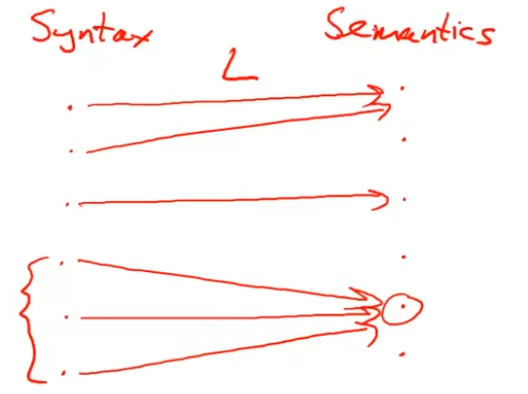 Syntax Semantics
L